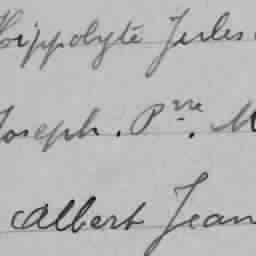 Hippolyte Jules
Joseph. Pʳʳᵉ. M
Albert Jean